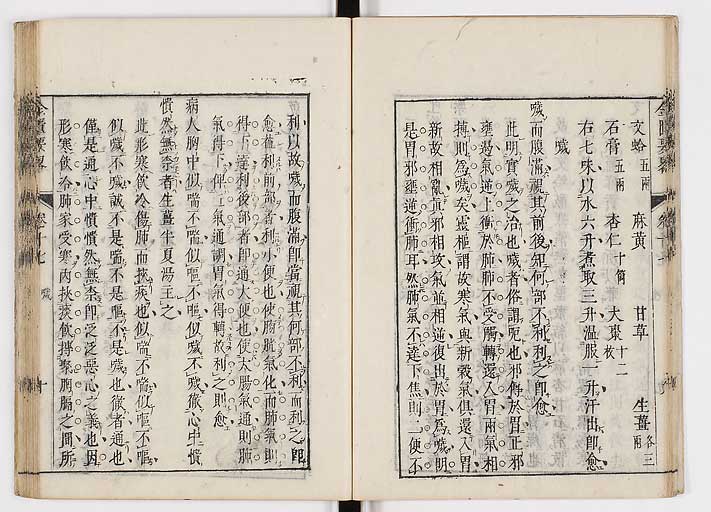 文蛤五兩　麻黃　甘草　生薑各三兩
石膏五兩　杏仁五十箇　大棗十二枚
右七味以水六升煮取三升溫服一升汗出卽愈
噦
噦而腹滿視其前後知何部不利利之卽愈
此明實噦之治也噦者俗謂呃也邪傳於胃正邪
壅遏氣逆上衝於肺肺不受觸轉還入胃兩氣相
搏則爲噦矣靈樞謂故寒氣與新穀氣俱還入胃
新故相亂眞邪相攻氣並相逆復出於胃爲噦明
是胃邪壅逆衝肺耳然肺氣不達下焦則二便不
利以故噦而腹滿卽當視其何部不利而利之卽
愈在利前部者利小便也使膀胱氣化而肺氣則
得下達利後部者卽通大便也使大腸氣通則肺
氣得下俾氣通調胃氣得轉故利之則愈
病人胸中似喘不喘似嘔不嘔似噦不噦徹心中憒
憒然無奈者生薑半夏湯主之
此形寒飲冷傷肺而挾痰也似喘不喘似嘔不嘔
似噦不噦誠不是喘不是嘔不是噦也徹者通也
僅是通心中憒憒然無奈卽泛泛惡心之義也因
形寒飲冷肺家受寒內挾痰飲摶聚胸膈之間所
金匱要畧
卷十七
噦
十